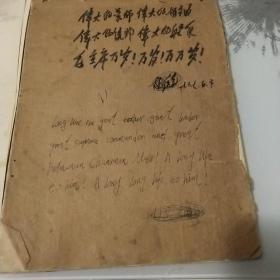 伟大的导师 伟大的领袖
伟大的统帅 伟大的舵手
毛主席万岁！万岁！万万岁！
Long live our great teacher great leader
great supreme commander and great
helmsman Chairman Mao! A long life
to him! A long long life to him!